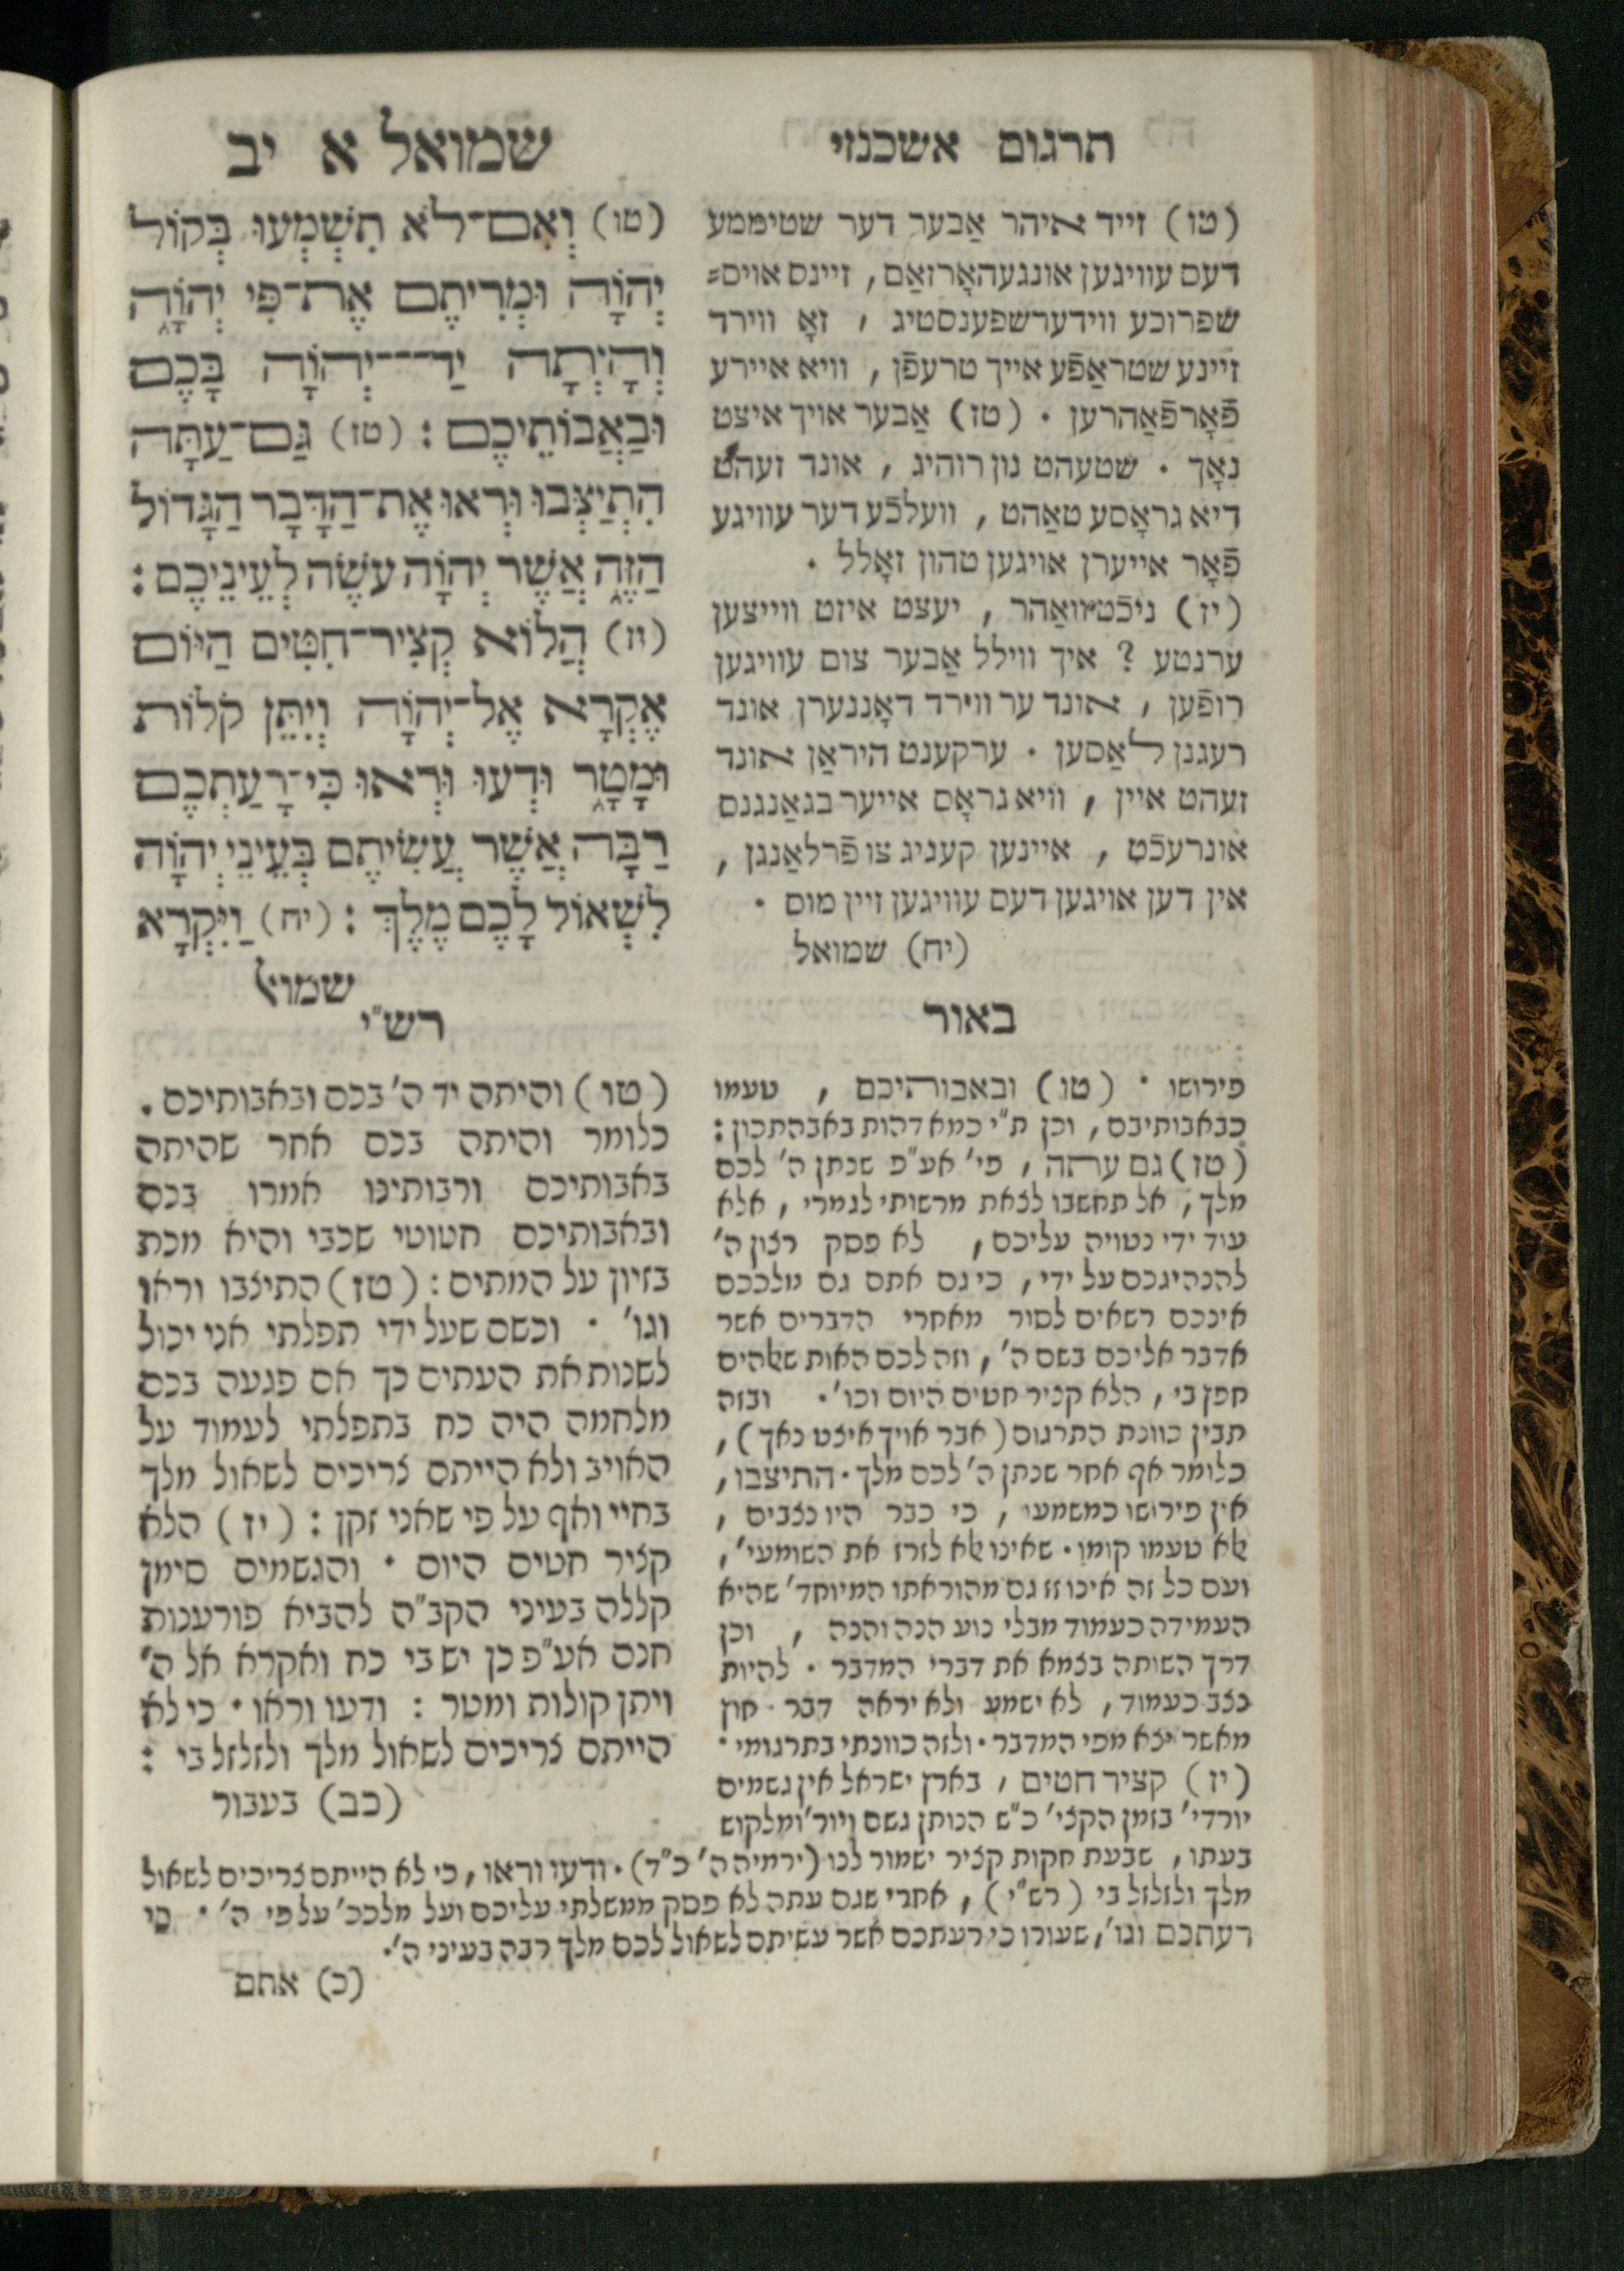 תרגום אשכנזי
(טו) זייד איהר אַבער דער שטיממע
דעס עוויגען אונגעהאָרזאַם, זיינס אויס=
שפרוכע ווידערשפענסטיג, זאָ ווירד
זיינע שטראַפֿע אייך טרעפֿן, וויא איירע
פֿאָרפֿאַהרען. (טז) אַבער אויך איצט
נאָך. שטעהט נון רוהיג, אונד זעהט
דיא גראָסע טאַהט, וועלכֿע דער עוויגע
פֿאָר אייערן אויגען טהון זאָלל.
(יז) ניכֿט וואַהר, יעצט איזט ווייצען
ערנטע? איך ווילל אַבער צום עוויגען
רופֿען, אונד ער ווירד דאָננערן אונד
רעגנן לאַסען. ערקענט היראַן אונד
זעהט איין, וויא גראָס אייער בגאַנגנס
אונרעכֿט, איינען קעניג צו פֿרלאַנגן,
אין דען אויגען דעס עוויגען זיין מוס.
(יח) שמואל
שמואל א יב
(טו) וְאִם־לֹא תִשְׁמְעוּ בְּקוֹל
יְהוָֹה וּמְרִיתֶם אֶת־פִּי יְהוָֹה
וְהָיְתָה יַד־יְהוָֹה בָּכֶם
וּבַאֲבוֹתֵיכֶם: (טז) גַּם־עַתָּה
הִתְיַצְּבוּ וּרְאוּ אֶת־הַדָּבָר הַגָּדוֹל
הַזֶּה אֲשֶׁר יְהוָֹה עֹשֶׂה לְעֵינֵיכֶם:
(יז) הֲלוֹא קְצִיר־חִטִּים הַיּוֹם
אֶקְרָא אֶל־יְהוָֹה וְיִתֵּן קֹלוֹת
וּמָטָר וּדְעוּ וּרְאוּ כִּי־רָעַתְכֶם
רַבָּה אֲשֶׁר עֲשִׂיתֶם בְּעֵינֵי יְהוָֹה
לִשְׁאוֹל לָכֶם מֶלֶךְ: (יח) וַיִּקְרָא
שמואל
באור
פירושו. (טו) ובאבותיכם, טעמו
כבאבותיכם, וכן ת"י כמא דהות באבהתכון:
(טז) גם עתה, פי' אע"פ שנתן ה' לכם
מלך, אל תחשבו לצאת מרשותי לגמרי, אלא
עוד ידי נטויה עליכם, לא פסק רצון ה'
להנהיגכם על ידי, כי גם אתם גם מלככם
אינכם רשאים לסור מאחרי הדברים אשר
אדבר אליכם בשם ה', וזה לכם האות שאלהים
חפץ בי, הלא קציר חטים היום וכו'. ובזה
תבין כוונת התרגום (אבר אויך איצט נאך),
כלומר אף אחר שנתן ה' לכם מלך. התיצבו,
אין פירושו כמשמעו, כי כבר היו נצבים,
אלא טעמו קומו. שאינו אלא לזרז את השומעי',
ועם כל זה אינו זז גם מהוראתו המיוחד' שהיא
העמידה כעמוד מבלי נוע הנה והנה, וכן
דרך השותה בצמא את דברי המדבר. להיות
נצב כעמוד, לא ישמע ולא יראה דבר חוץ
מאשר יצא מפי המדבר. ולזה כוונתי בתרגומי.
(יז) קציר חטים, בארץ ישראל אין גשמים
יורדי' בזמן הקצי' כ"ש הנותן גשם ויור' ומלקוש
בעתו, שבעת חקות קציר ישמור לנו (ירמיה ה' כ"ד). ודעו וראו, כי לא הייתם צריכים לשאול
מלך ולזלזל בי (רש"י), אחרי שגם עתה לא פסק ממשלתי עליכם ועל מלככ' על פי ה'. כי
רעתכם וגו', שעורו כי רעתכם אשר עשיתם לשאול לכם מלך רבה בעיני ה'.
(כ) אתם
רש"י
(טו) והיתה יד ה' בכם ובאבותיכם.
כלומר והיתה בכם אחר שהיתה
באבותיכם ורבותינו אמרו בכם
ובאבותיכם חטוטי שכבי והיא מכת
בזיון על המתים: (טז) התיצבו וראו
וגו'. וכשם שעל ידי תפלתי אני יכול
לשנות את העתים כך אם פגעה בכם
מלחמה היה כח בתפלתי לעמוד על
האויב ולא הייתם צריכים לשאול מלך
בחיי ואף על פי שאני זקן: (יז) הלא
קציר חטים היום. והגשמים סימן
קללה בעיני הקב"ה להביא פורענות
חנם אע"פ כן יש בי כח ואקרא אל ה'
ויתן קולות ומטר: ודעו וראו. כי לא
הייתם צריכים לשאול מלך ולזלזל בי:
(כב) בעבור